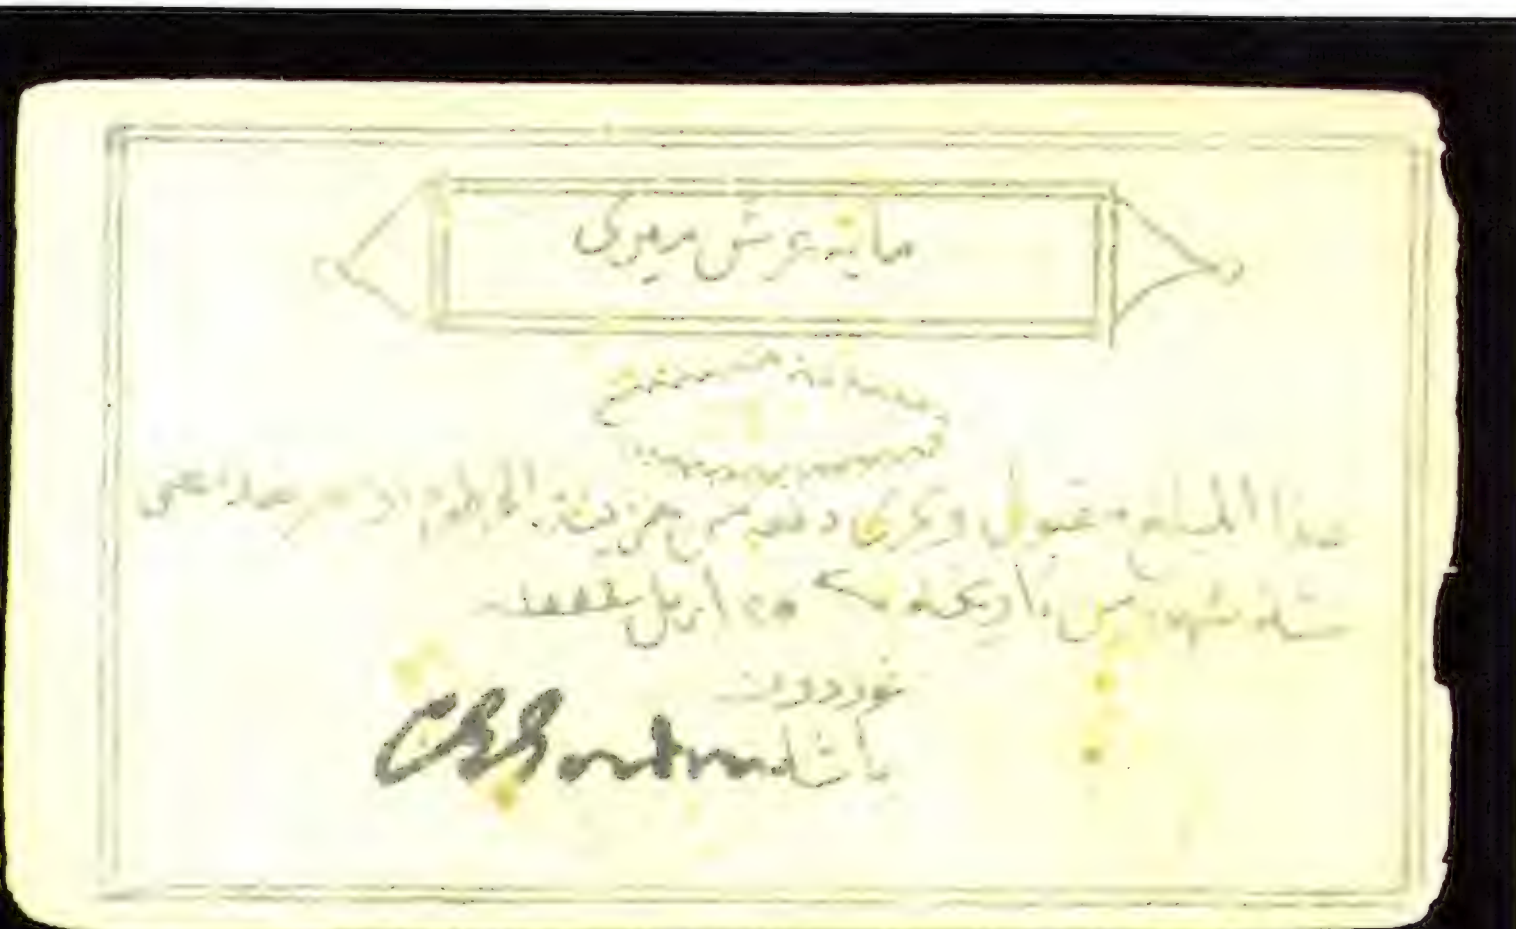 ماية غرش ميرى
هذا المبلغ مقبول ويجرى دفعه من خزينة الخرطوم او مصر بعد مضى
ستة شهور من تاريخه ٢٥ ابريل
غوردون
باشا
C G Gordon